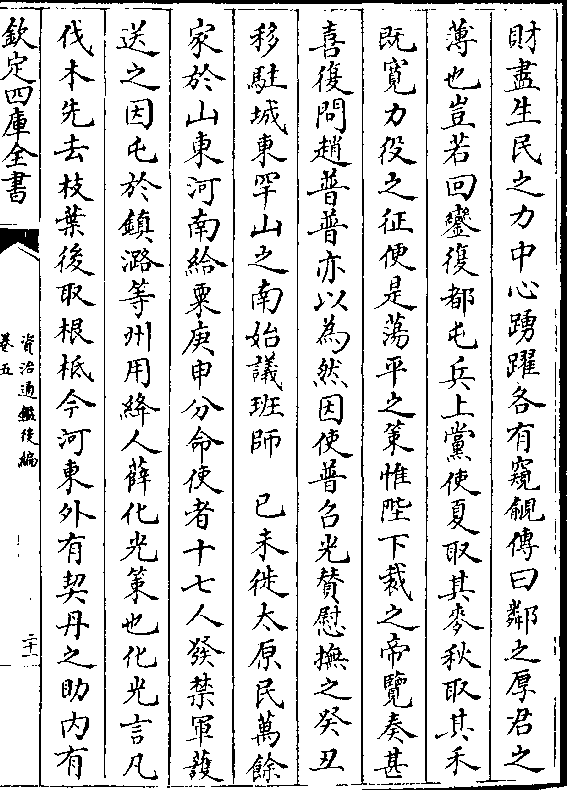 財盡生民之力中心踴躍各有窺覦傳曰鄰之厚君之
薄也豈若回鑾復都屯兵上黨使夏取其麥秋取其禾
既寛力役之征便是蕩平之策惟陛下裁之帝覽奏甚
喜復問趙普普亦以為然因使普召光贊慰撫之癸丑
移駐城東罕山之南始議班師　己未徙太原民萬餘
家於山東河南給粟庚申分命使者十七人發禁軍護
送之因屯於鎮潞等州用絳人薛化光策也化光言凡
伐木先去枝葉後取根柢今河東外有契丹之助内有
欽定四庫全書
資治通鑑後編
卷五
二十一